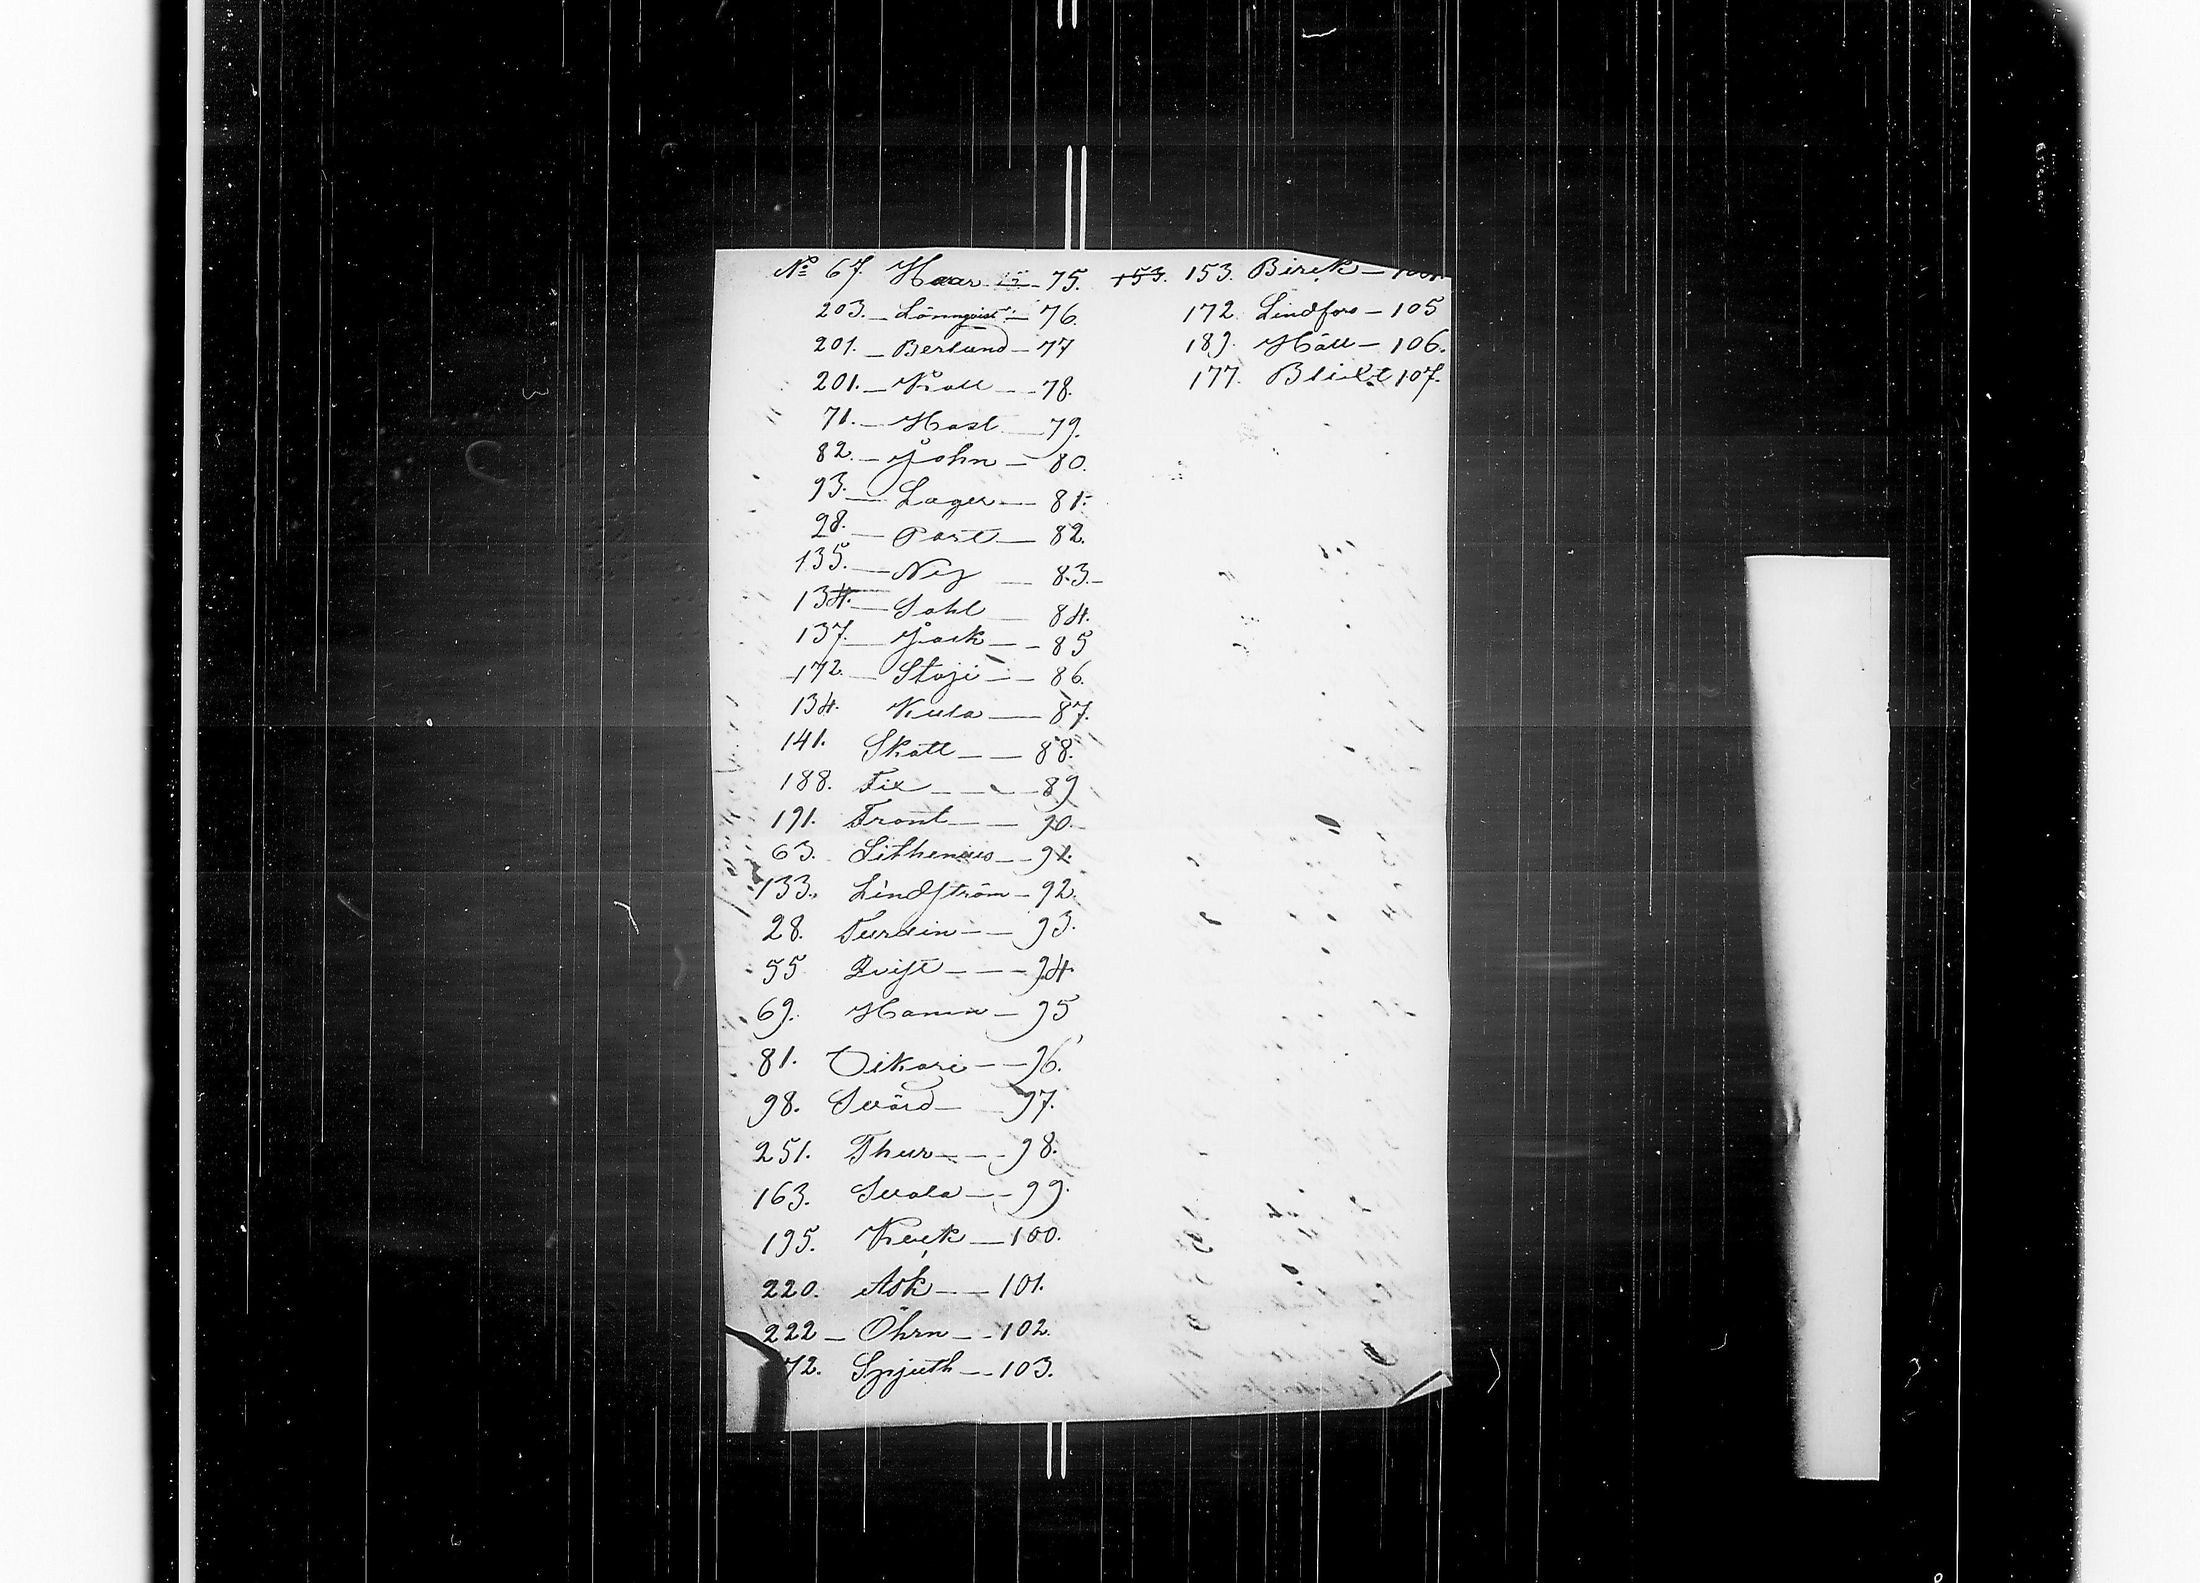 № 67. Haar - 75.
203. - Lönnqvist - 76.
201. - Berlund - 77
201. - Knall - - 78.
71. - Hast - 79.
82. - John - 80.
93. - Lager - 81.
98. - Post - 82.
135. - Nej - 83.
134. - Sahl - 84.
137. - Jack - - 85
172. - Stoji - - 86.
134. Kula - 87.
141. Skatt - - 88.
188. Fix - - - 89
191. Front - - 90.
63. Lithenius - 91.
133. Lindström - 92.
28. Turdin - - 93.
55 Qvist - - - 94.
69. Hamn - 95
81. Oikari - - 96.
98. Svärd - 97.
251. Thur - - - 98.
163. Svala - - 99.
195. Kvick - 100.
220. Ask - - 101.
222 - Öhrn - - 102.
72. Spjuth - - 103.
153. 153. Birck -
172. Lindfors - 105
189. Häll - 106.
177. Blixt 107.